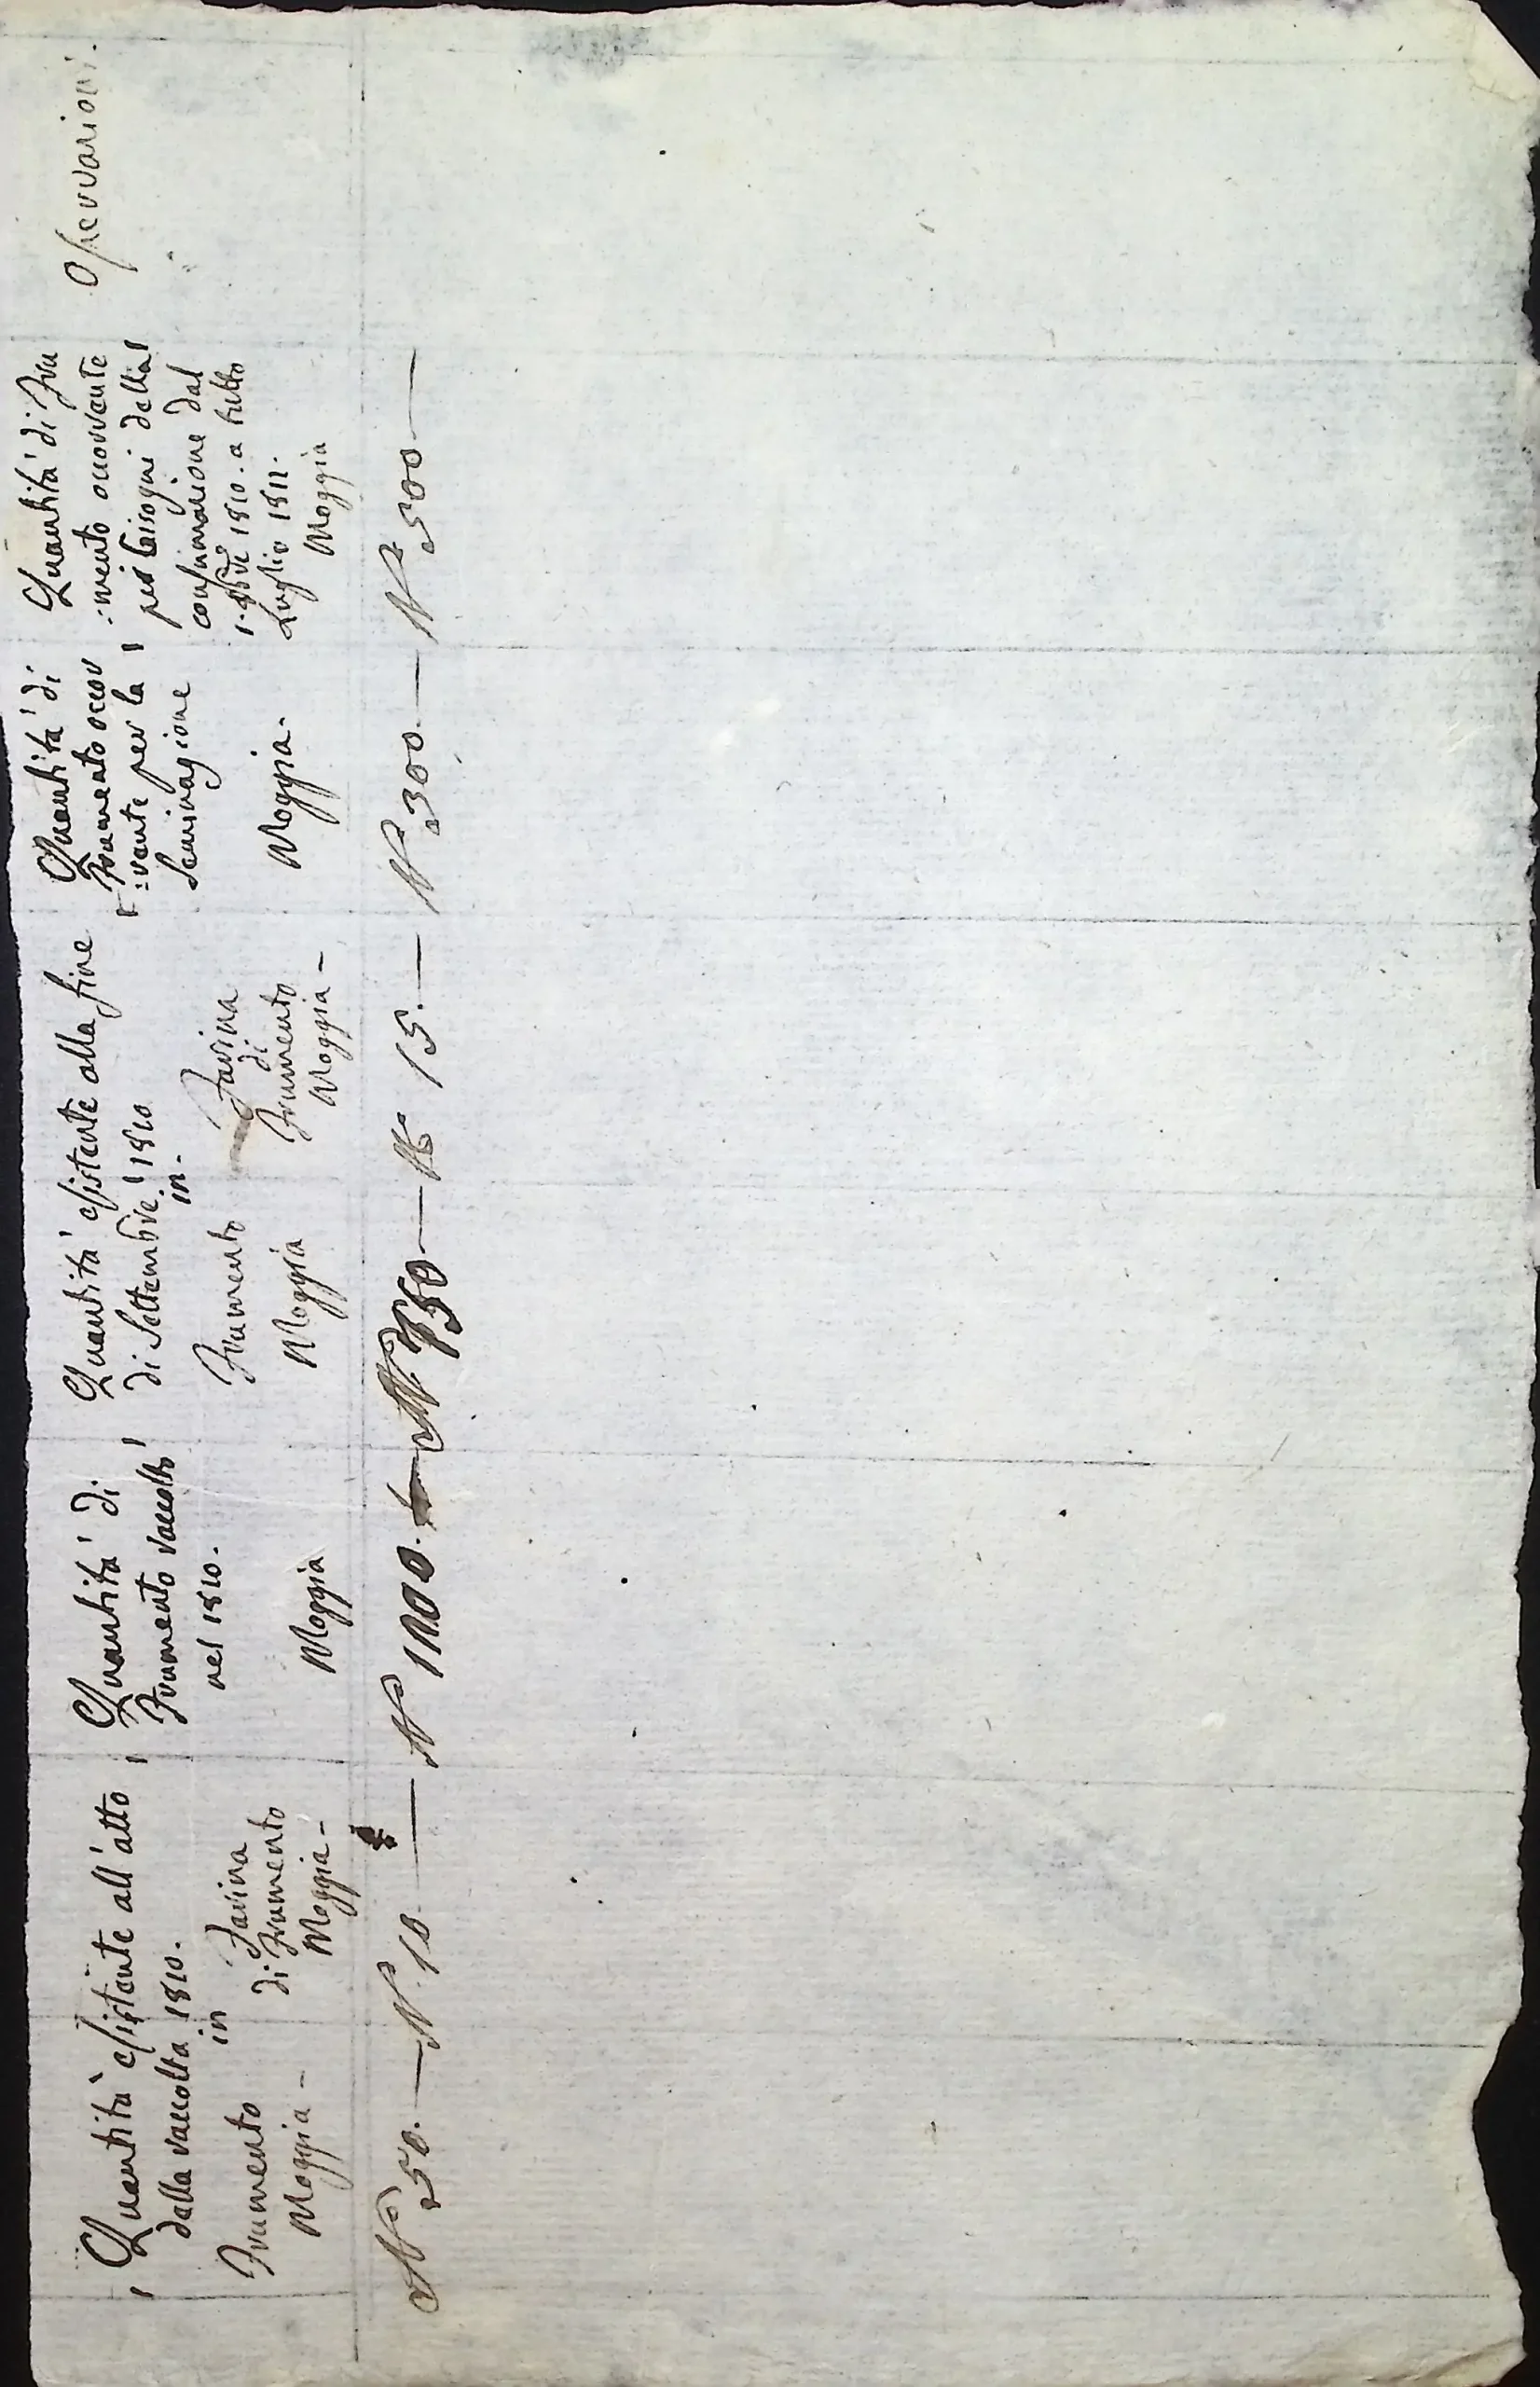 Quantità esistente all'atto
dalla raccolta 1810.
in
Frumento
Moggia -
Farina
di Frumento
Moggia -
Quantità di
Frumento raccolto
nel 1810.
Moggia
Quantità esistente alla fine
di Settembre 1810
in -
Frumento
Moggia
Farina
di
Frumento
Moggia -
Quantità di
Frumento occor
:rente per la
Seminagione
Moggia.
Quantità di Fru
:mento occorrente
per bisogni della
consumazione dal
1. 8bre 1810. a tutto
Luglio 1811.
Moggia
Osservazioni.
N° 50. — N. 10 — N° 1100. — N° 950 — N° 15. — N° 300. — N° 500 —